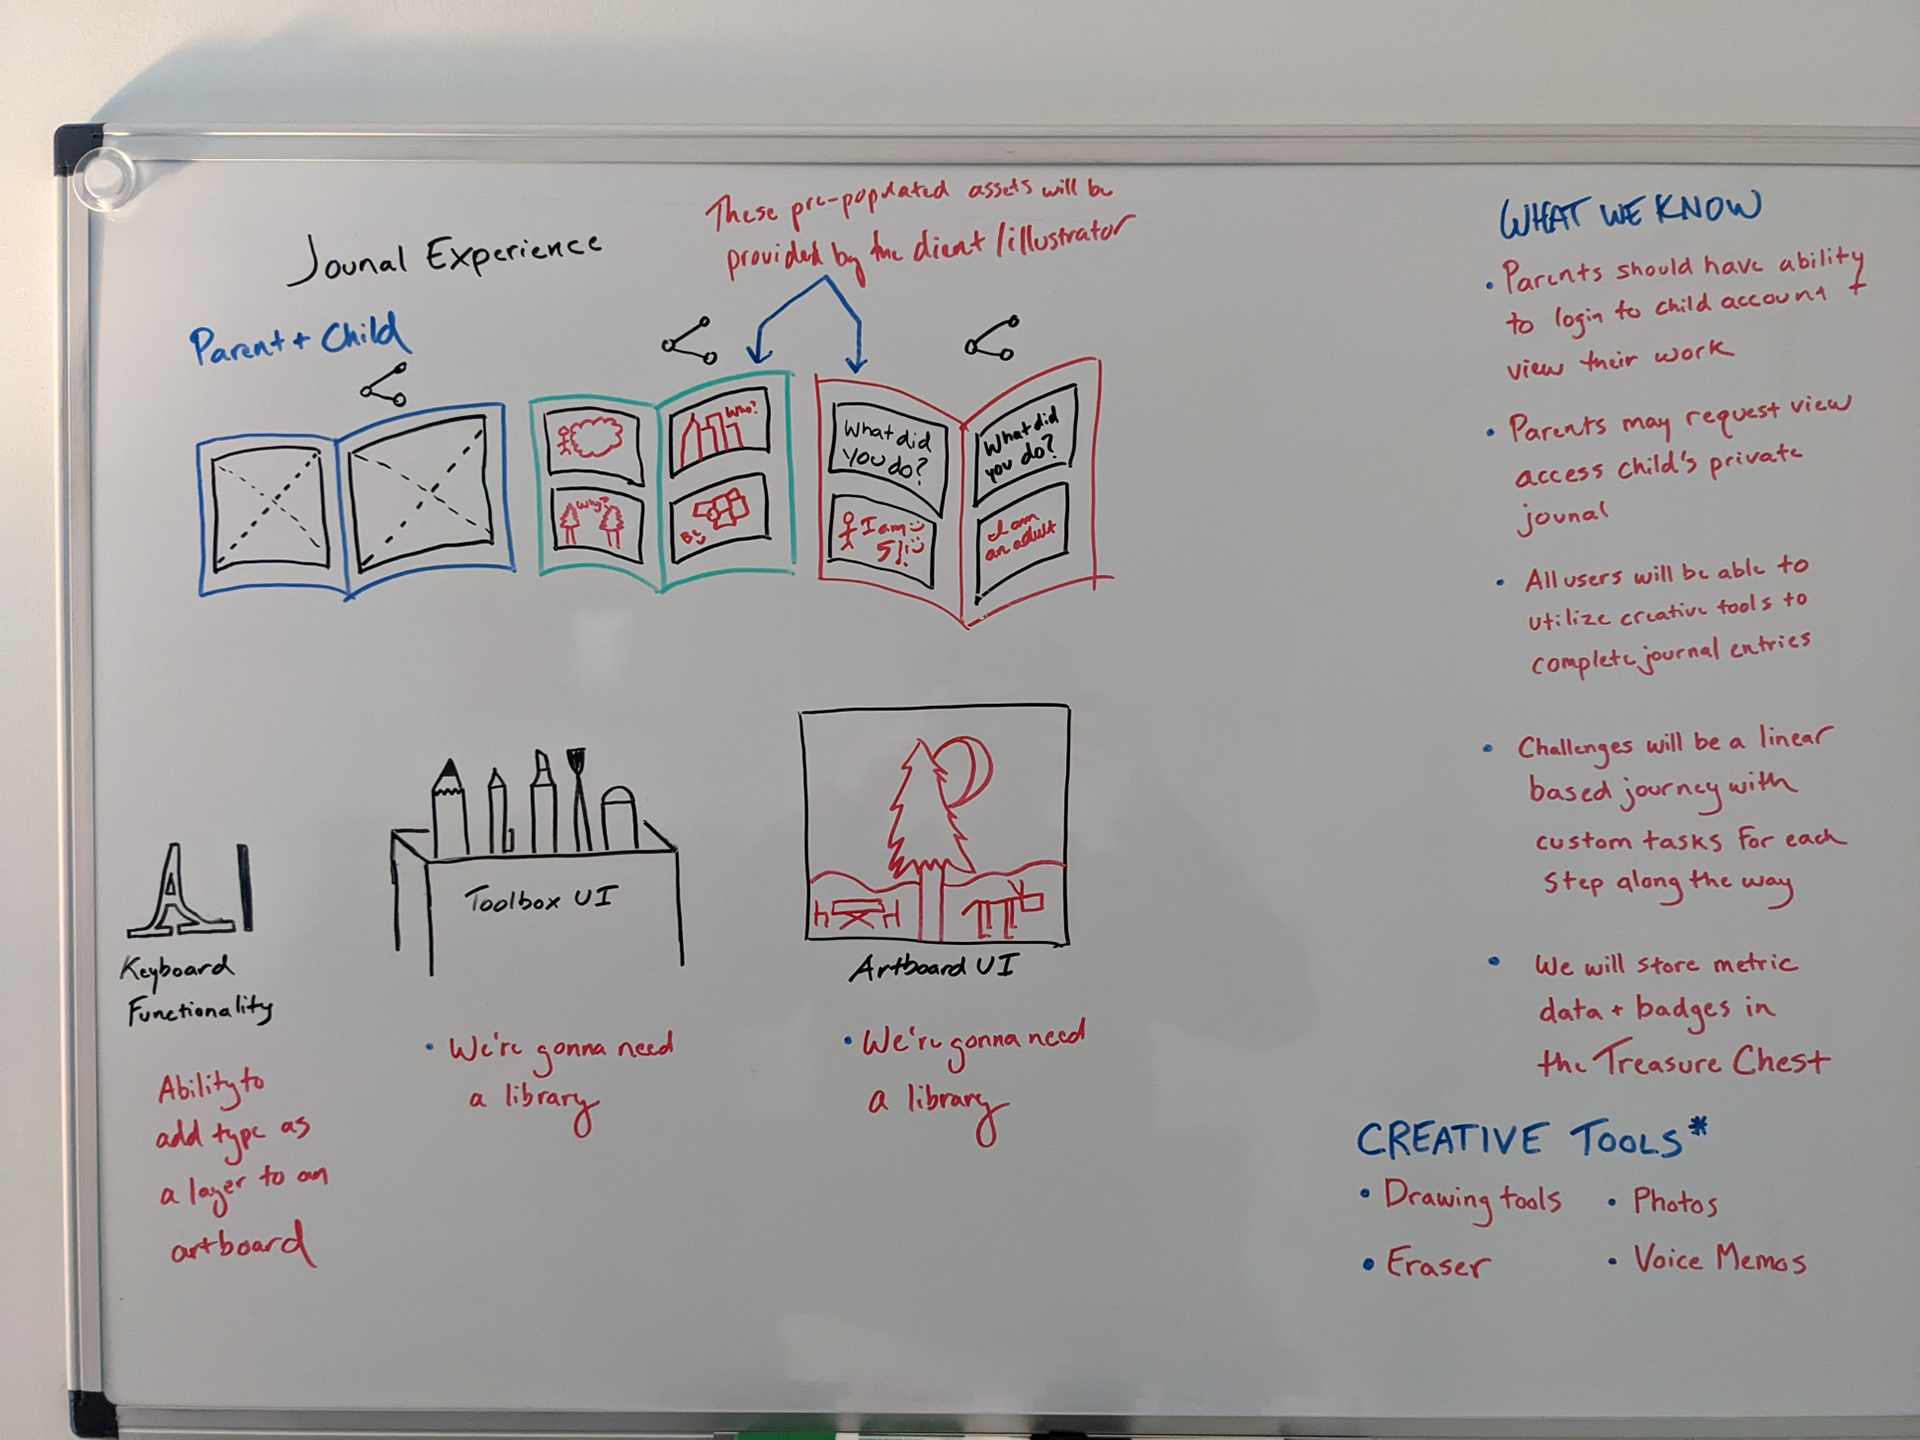 Jounal Experience
These pre-populated assets will be
provided by the client/illustrator
Parent + Child
Who?
Why?
What did
you do?
I am
5!
What did
you do?
I am
an adult
Keyboard
Functionality
Ability to
add type as
a layer to an
artboard
Toolbox UI
• We're gonna need
a library
Artboard UI
• We're gonna need
a library
WHAT WE KNOW
• Parents should have ability
to login to child account +
view their work
• Parents may request view
access child's private
jounal
• All users will be able to
utilize creative tools to
complete journal entries
• Challenges will be a linear
based journey with
custom tasks for each
step along the way
• We will store metric
data + badges in
the Treasure Chest
CREATIVE TOOLS*
• Drawing tools
• Photos
• Eraser
• Voice Memos